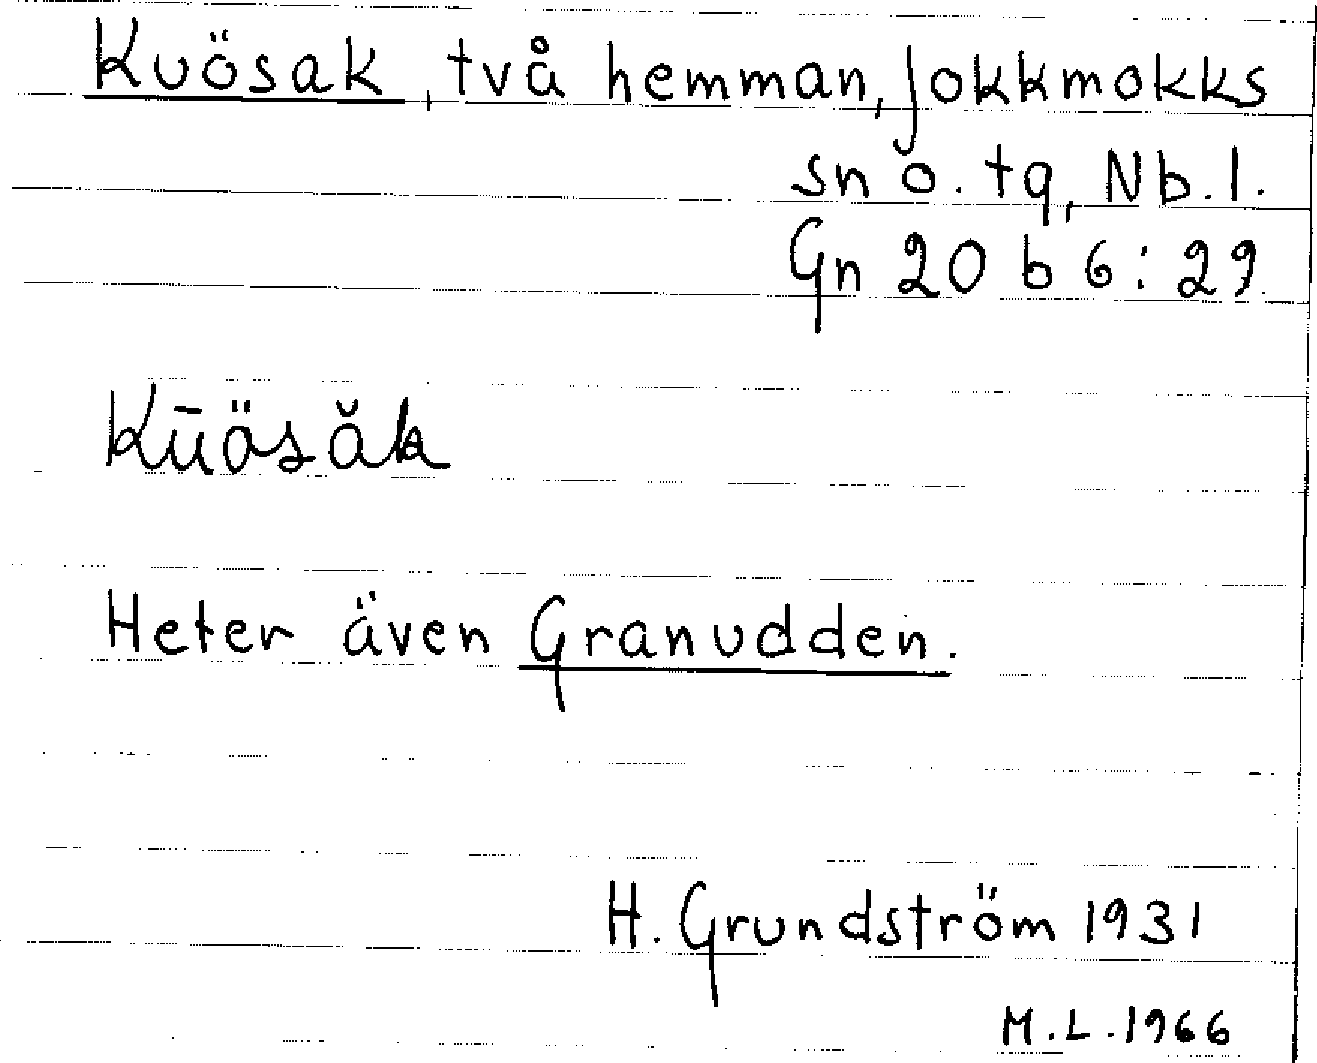 Kuösak, två hemman, Jokkmokks
sn o. tg, Nb. l.
Gn 20 b 6:29.
Kūäsăk
Heter även Granudden.
H. Grundström 1931
M.L. 1966